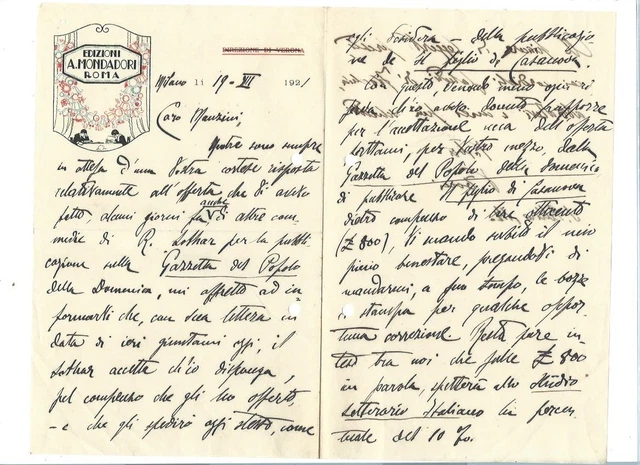 EDIZIONI
A. MONDADORI
ROMA
DIREZIONE DI VERONA
Milano li 19-VI 1921
Caro Manzini,
Mentre sono sempre
in attesa d'una Vostra cortese risposta
relativamente all'offerta che Vi avevo
fatto, alcuni giorni fa, anche di altre com-
medie di R. Lothar per la pubbli-
cazione sulla Gazzetta del Popolo
della Domenica, mi affretto ad in-
formarti che, con sua lettera in
data di ieri giuntami oggi, il
Lothar accetta ch'io disponga,
pel compenso che gli ho offerto,
- e che gli spedirò oggi stesso, come
egli desidera della pubblicazio-
ne de Il figlio di Casanova.
questo,
per l'accettazione
per l'altro mezzo, dalla
Gazzetta del Popolo della domenica
di pubblicare Il figlio di Casanova
dietro compenso di lire ottocento
(£ 800), Vi mando subito il mio
pieno benestare, pregandovi di
mandarmi, a suo tempo, le bozze
di stampa per qualche oppor-
tuna correzione. Resta pure in-
teso tra noi che sulle £ 800
in parola, spetterà allo Studio
Letterario Italiano la percen-
tuale del 10 %.